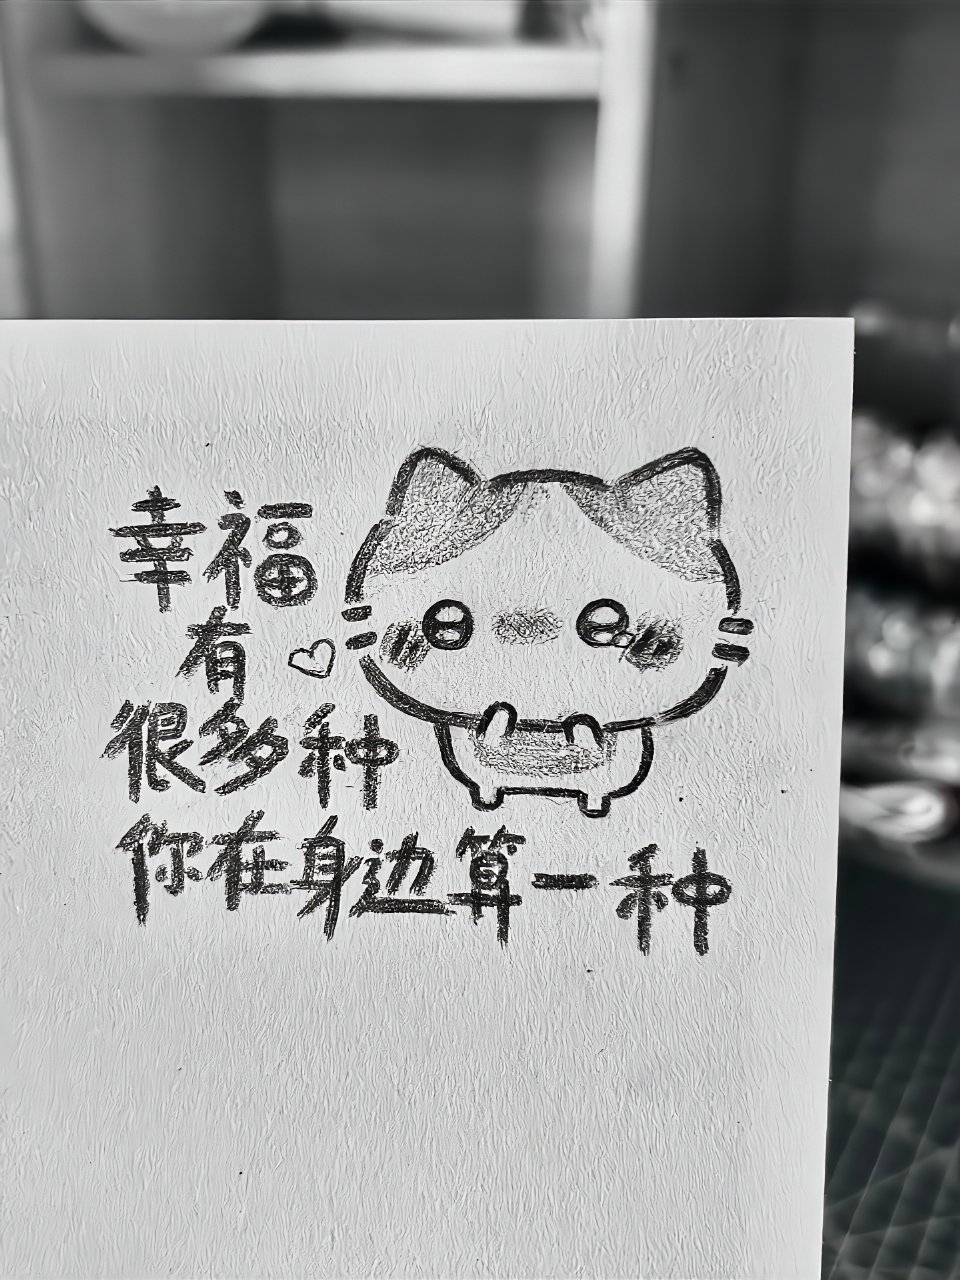 幸福
有
很多种
你在身边算一种